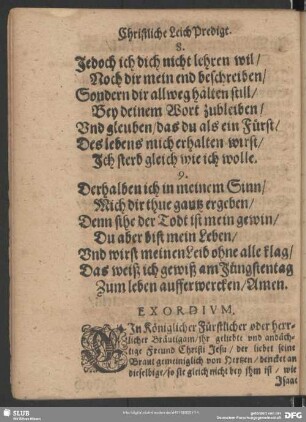 Christliche Leich Predigt.
8.
Jedoch ich dich nicht lehren wil/
Noch dir mein end beschreiben/
Sondern dir allweg halten still/
Bey deinem Wort zubleiben/
Vnd gleuben/das du als ein Fürst/
Des lebens mich erhalten wirst/
Ich sterb gleich wie ich wolle.
9.
Derhalben ich in meinem Sinn/
Mich dir thue gantz ergeben/
Denn sihe der Todt ist mein gewin/
Du aber bist mein Leben/
Vnd wirst meinen Leib ohne alle klag/
Das weiß ich gewiß am Jüngstentag
Zum leben aufferwercken/Amen.
EXORDIVM.
EIn Königlicher Fürstlicher oder herr-
licher Bräutigam/ihr geliebte vnd andäch-
tige Freund Christi Jesu/der liebet seine
Braut gemeiniglich von Hertzen/dencket an
dieselbige/so sie gleich nicht bey ihm ist/wie
Isaac
SLUB